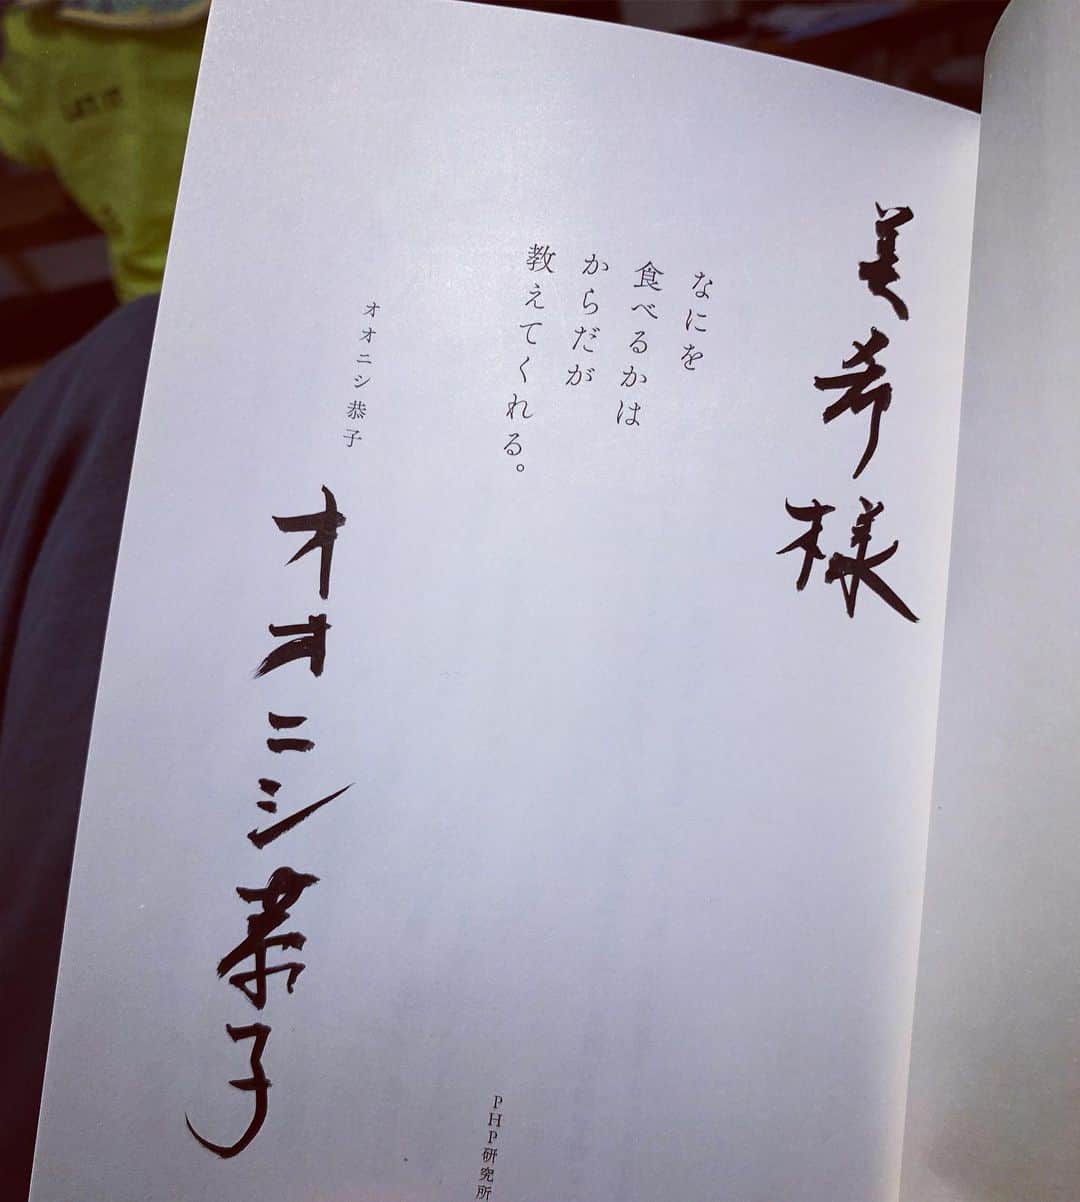 美希様
なにを
食べるかは
からだが
教えてくれる。
オオニシ恭子
オオニシ恭子
PHP研究所